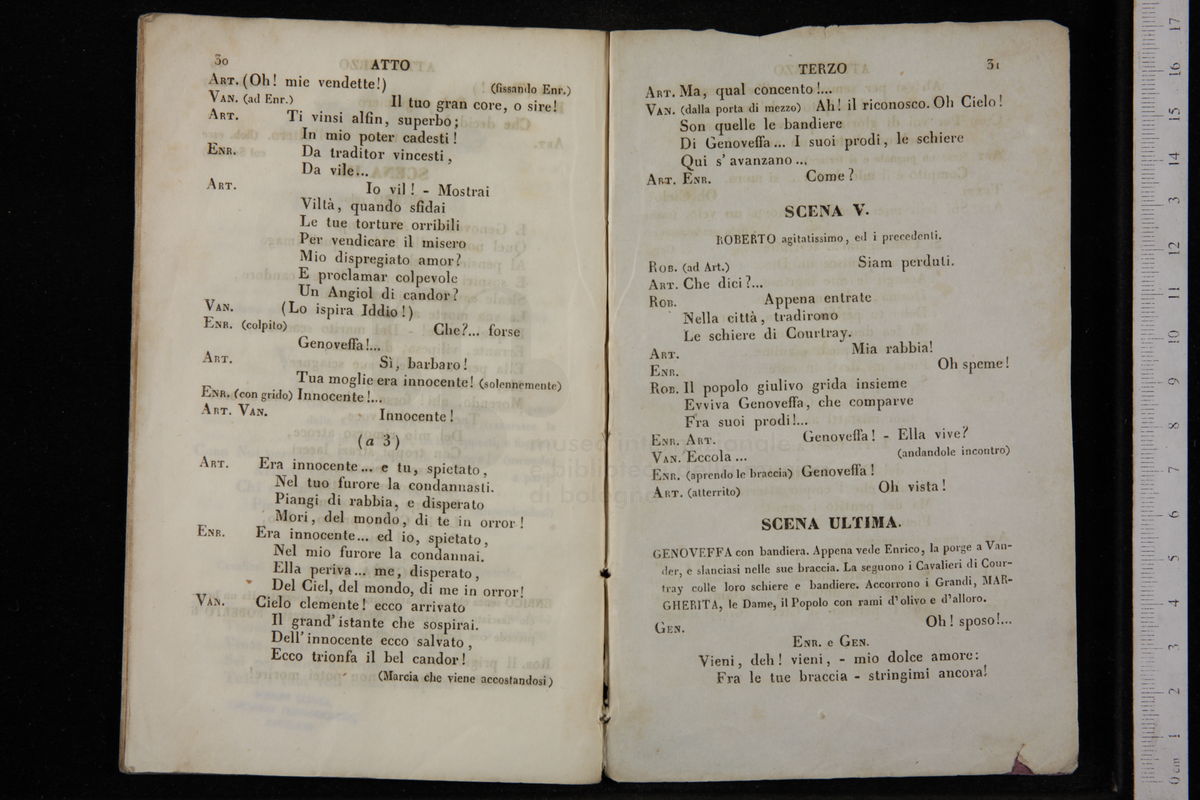 30 ATTO
ART. (Oh! mie vendette!) (fissando Enr.)
VAN. (ad Enr.) Il tuo gran core, o sire!
ART. Ti vinsi alfin, superbo;
In mio poter cadesti!
ENR. Da traditor vincesti,
Da vile...
ART. Io vil! - Mostrai
Viltà, quando sfidai
Le tue torture orribili
Per vendicare il misero
Mio dispregiato amor?
E proclamar colpevole
Un Angiol di candor?
VAN. (Lo ispira Iddio!)
ENR. (colpito) Che?... forse
Genoveffa!...
ART. Sì, barbaro!
Tua moglie era innocente! (solennemente)
ENR. (con grido) Innocente!...
ART. VAN. Innocente!
(a 3)
ART. Era innocente... e tu, spietato,
Nel tuo furore la condannasti.
Piangi di rabbia, e disperato
Mori, del mondo, di te in orror!
ENR. Era innocente... ed io, spietato,
Nel mio furore la condannai.
Ella periva... me, disperato,
Del Ciel, del mondo, di me in orror!
VAN. Cielo clemente! ecco arrivato
Il grand'istante che sospirai.
Dell'innocente ecco salvato,
Ecco trionfa il bel candor!
(Marcia che viene accostandosi)
TERZO 31
ART. Ma, qual concento!...
VAN. (dalla porta di mezzo) Ah! il riconosco. Oh Cielo!
Son quelle le bandiere
Di Genoveffa... I suoi prodi, le schiere
Qui s'avanzano...
ART. ENR. Come?
SCENA V.
ROBERTO agitatissimo, ed i precedenti.
ROB. (ad Art.) Siam perduti.
ART. Che dici?...
ROB. Appena entrate
Nella città, tradirono
Le schiere di Courtray.
ART. Mia rabbia!
ENR. Oh speme!
ROB. Il popolo giulivo grida insieme
Evviva Genoveffa, che comparve
Fra suoi prodi!...
ENR. ART. Genoveffa! - Ella vive?
VAN. Eccola... (andandole incontro)
ENR. (aprendo le braccia) Genoveffa!
ART. (atterrito) Oh vista!
SCENA ULTIMA.
GENOVEFFA con bandiera. Appena vede Enrico, la porge a Van-
der, e slanciasi nelle sue braccia. La seguono i Cavalieri di Cour-
tray colle loro schiere e bandiere. Accorrono i Grandi, MAR-
GHERITA, le Dame, il Popolo con rami d'olivo e d'alloro.
GEN. Oh! sposo!...
ENR. e GEN.
Vieni, deh! vieni, - mio dolce amore:
Fra le tue braccia - stringimi ancora!